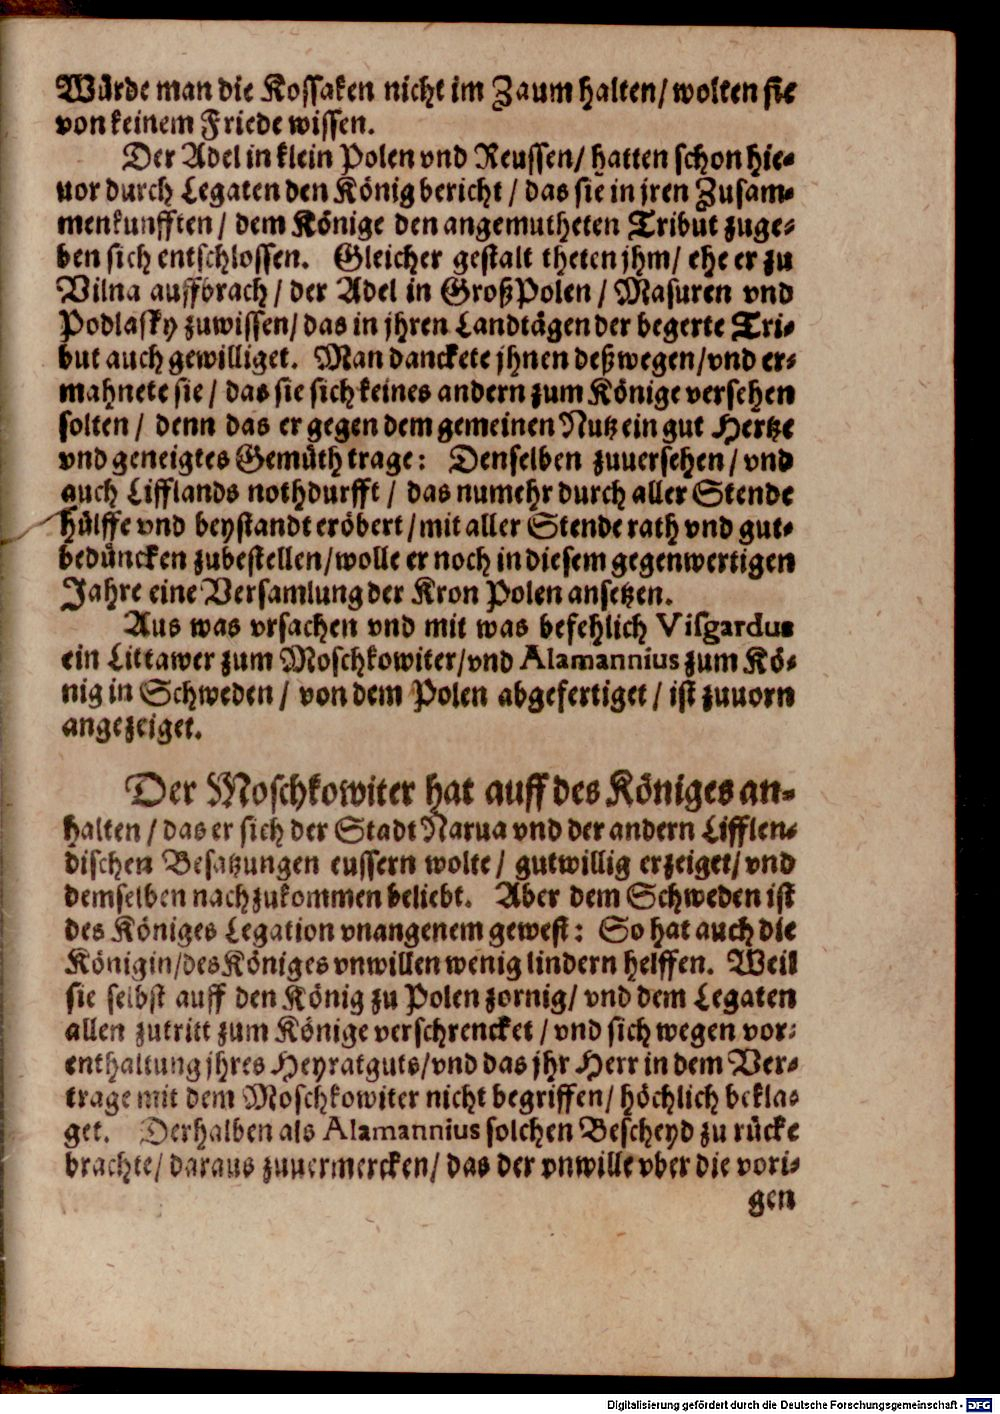 Würde man die Kossaken nicht im Zaum halten/ wolten sie
von keinem Friede wissen.
Der Adel in klein Polen vnd Reussen/ hatten schon hie-
uor durch Legaten den König bericht / das sie in jren Zusam-
menkunfften / dem Könige den angemutheten Tribut zuge-
ben sich entschlossen. Gleicher gestalt theten jhm/ ehe er zu
Vilna auffbrach / der Adel in Groß Polen / Masuren vnd
Podlasky zuwissen/ das in jhren Landtägen der begerte Tri-
but auch gewilliget. Man danckete jhnen deßwegen/ vnd er-
mahnete sie / das sie sich keines andern zum Könige versehen
solten / denn das er gegen dem gemeinen Nutz ein gut Hertze
vnd geneigtes Gemüth trage: Denselben zuuersehen / vnd
auch Lifflands nothdurfft / das numehr durch aller Stende
hülffe vnd beystandt eröbert / mit aller Stende rath vnd gut-
bedüncken zubestellen/ wolle er noch in diesem gegenwertigen
Jahre eine Versamlung der Kron Polen ansetzen.
Aus was vrsachen vnd mit was befehlich Visgardus
ein Littawer zum Moschkowiter/ vnd Alamannius zum Kö-
nig in Schweden / von dem Polen abgefertiget / ist zuuorn
angezeiget.
Der Moschkowiter hat auff des Königes an-
halten / das er sich der Stadt Narua vnd der andern Lifflen-
dischen Besatzungen eussern wolte / gutwillig erzeiget/ vnd
demselben nachzukommen beliebt. Aber dem Schweden ist
des Königes Legation vnangenem gewest: So hat auch die
Königin/ des Königes vnwillen wenig lindern helffen. Weil
sie selbst auff den König zu Polen zornig/ vnd dem Legaten
allen zutritt zum Könige verschrencket / vnd sich wegen vor-
enthaltung jhres Heyratguts/ vnd das jhr Herr in dem Ver-
trage mit dem Moschkowiter nicht begriffen/ höchlich bekla-
get. Derhalben als Alamannius solchen Bescheyd zu rücke
brachte/ daraus zuuermercken/ das der vnwille vber die vori-
gen
Digitalisierung gefördert durch die Deutsche Forschungsgemeinschaft - DFG